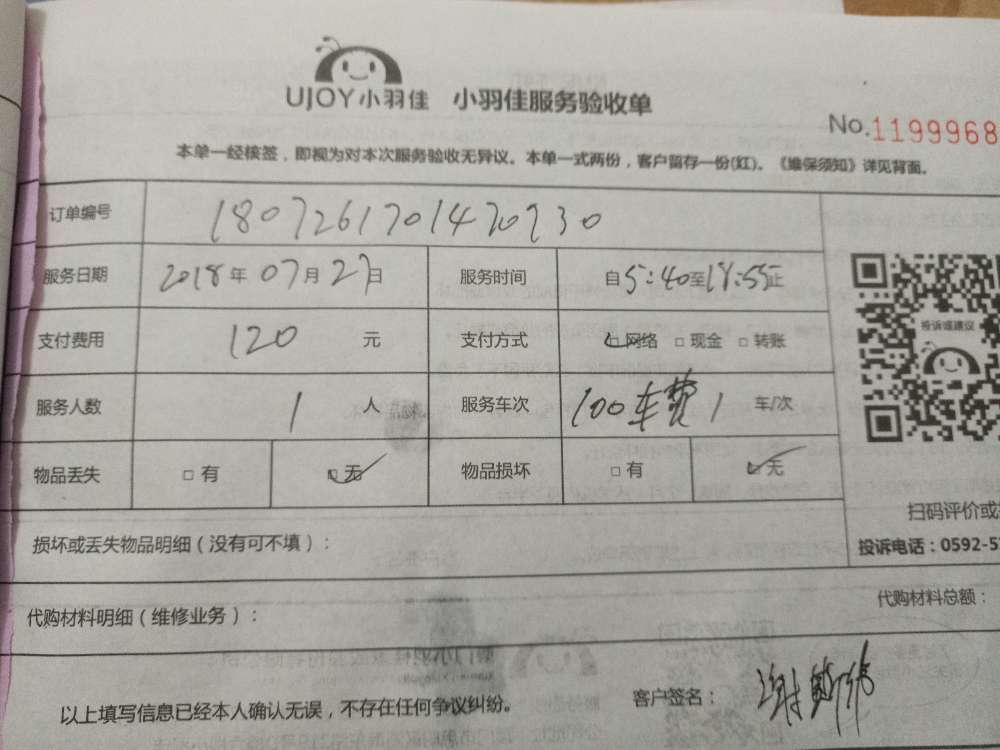 UJOY 小羽佳 小羽佳服务验收单
No.1199968
本单一经核签，即视为对本次服务验收无异议。本单一式两份，客户留存一份(红)。《维保须知》详见背面。
订单编号 1807261701470730
服务日期 2018年07月27日 服务时间 自5:40至18:55止
支付费用 120 元 支付方式 □网络 □现金 □转账
投诉或建议
服务人数 1 人 服务车次 100车费1 车/次
物品丢失 □有 □无 物品损坏 □有 □无
扫码评价或
损坏或丢失物品明细（没有可不填）：
投诉电话：0592-5
代购材料明细（维修业务）：
代购材料总额：
以上填写信息已经本人确认无误，不存在任何争议纠纷。
客户签名：